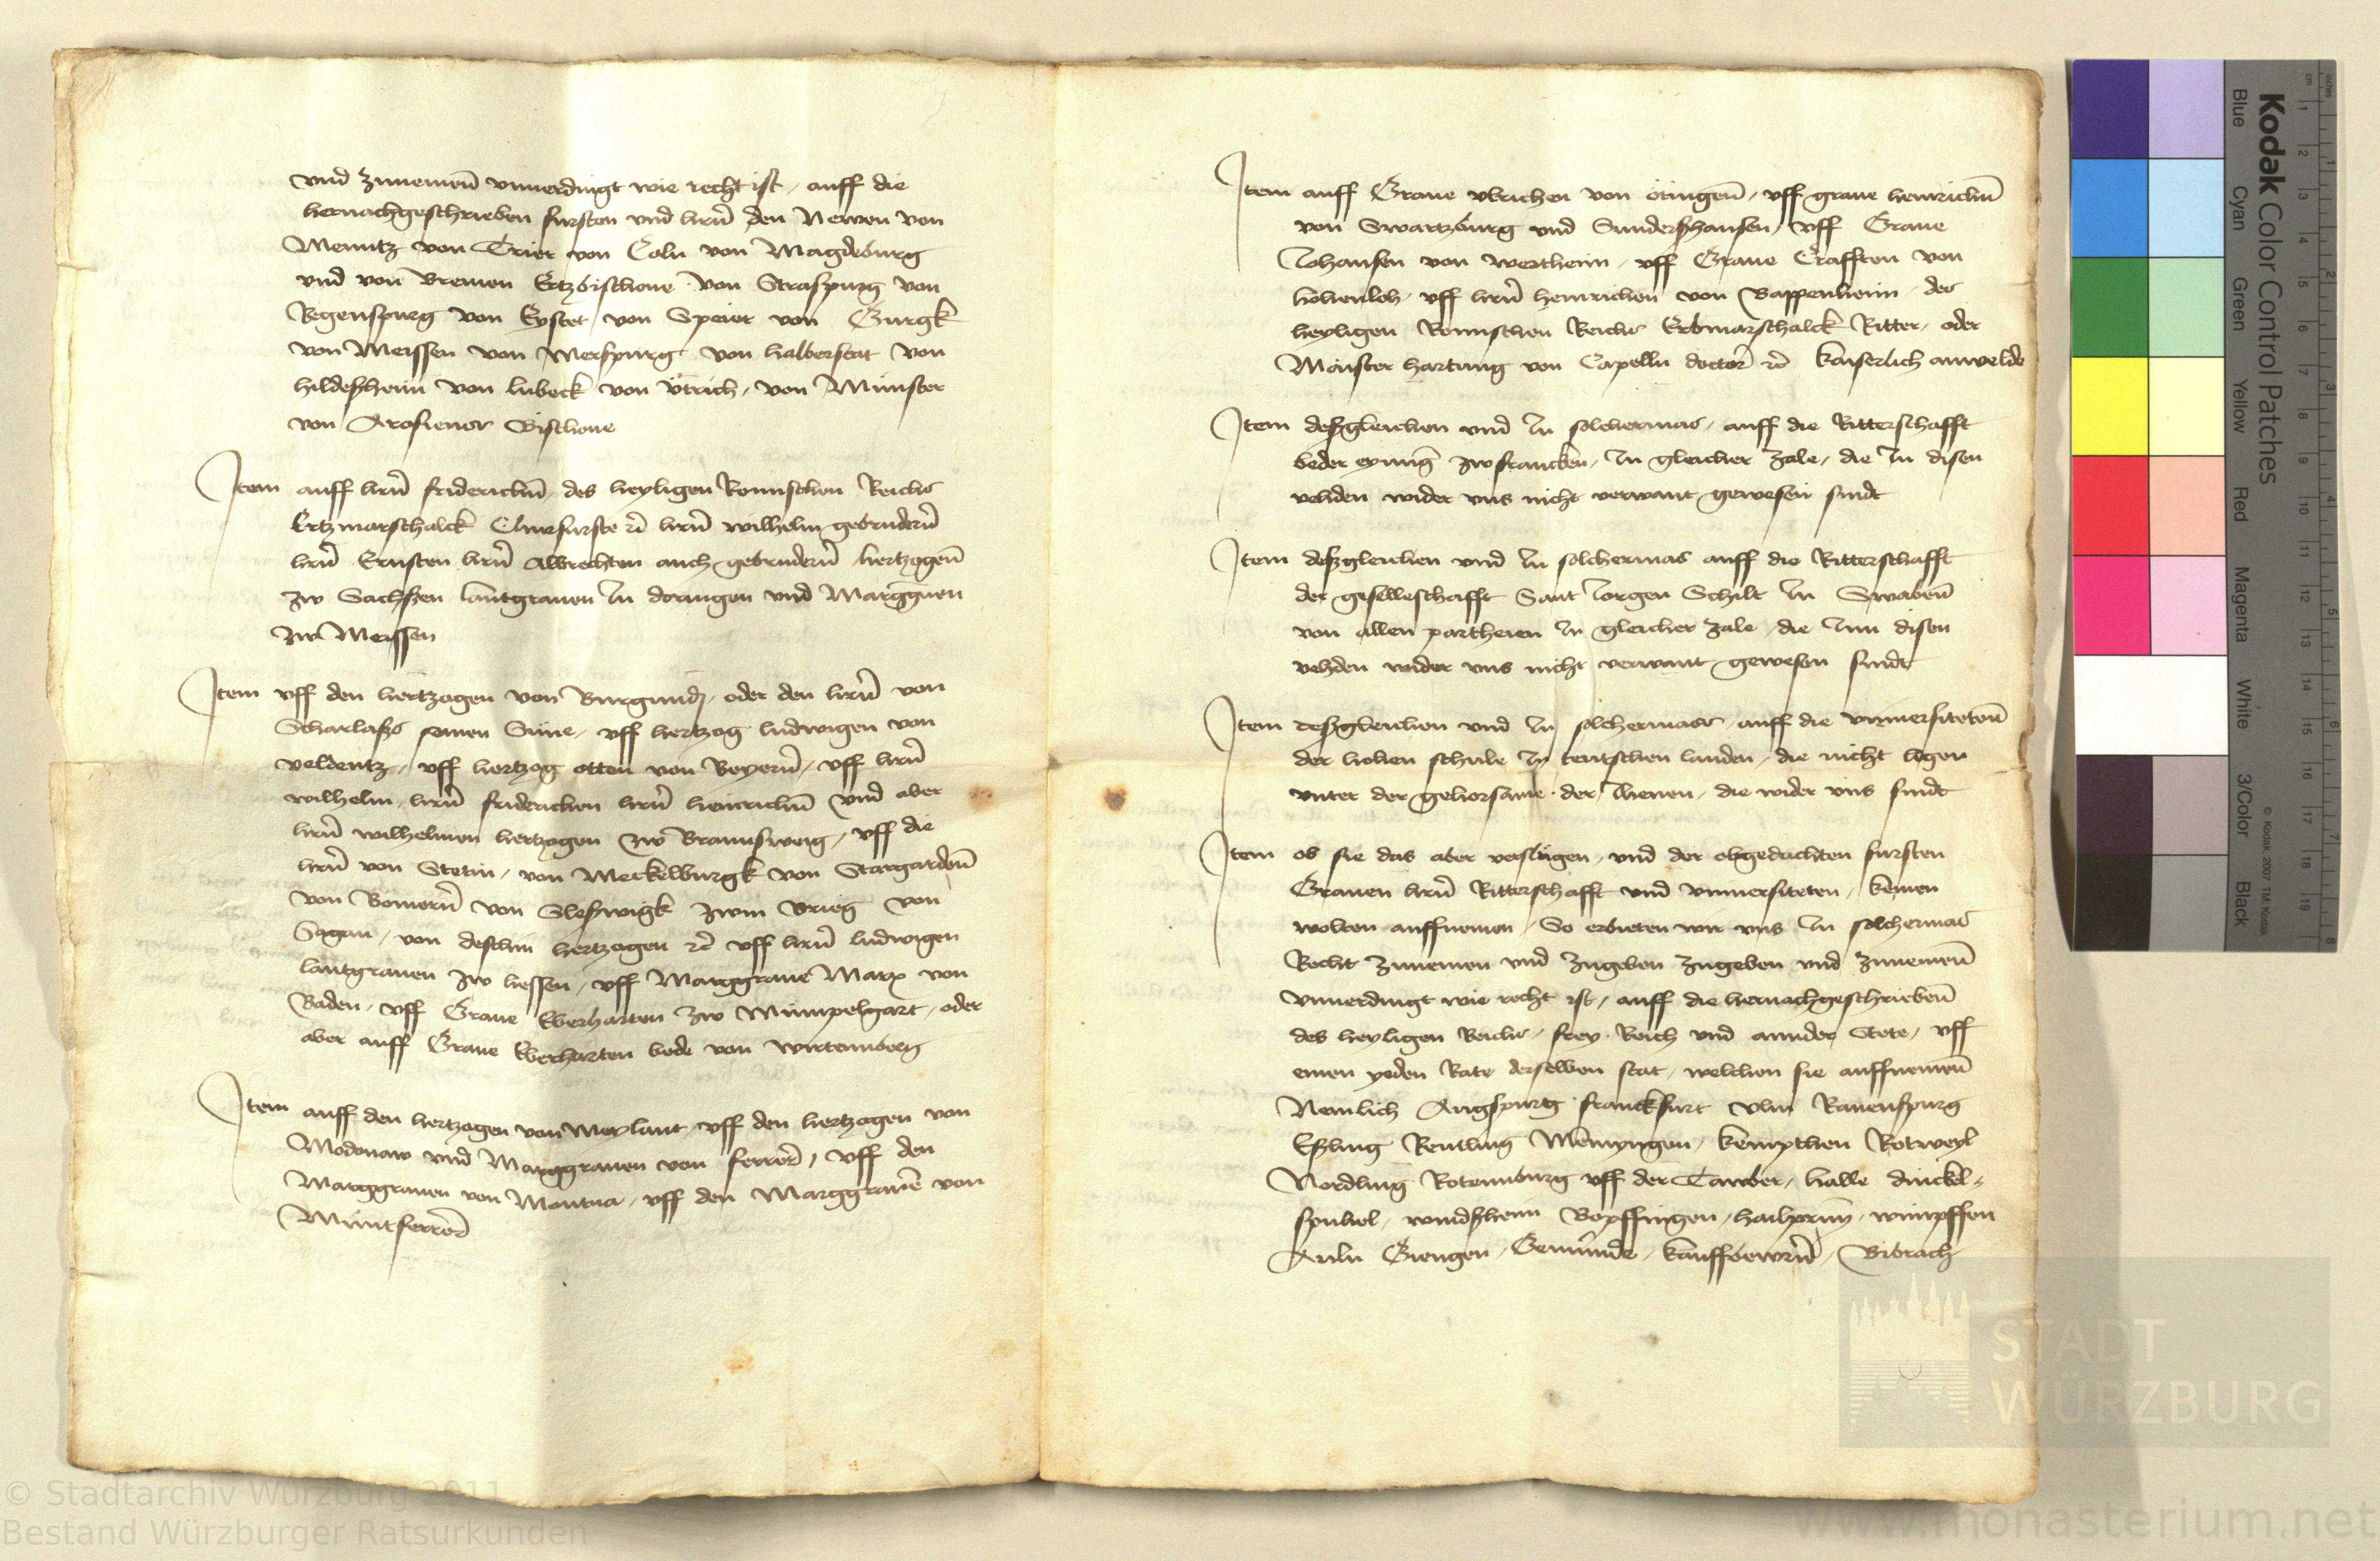 vnd zunemen vnuerdingt wie recht ist / auff die
hernachgeschrieben fursten vnd hrn den Newen von
Menntz von Trier von Coln von Magdeburg
vnd von Bremen Ertzbischoue von Straspurg von
Regenspurg von Eystet von Speier von Gurgk
von Meissen von Merspurg von halberstat von
hildesheim von lubeck von vtrich / von Münster
von Bischoue
Item auff hrn friderichen des heyligen Romischen Reichs
Ertzmarschalck Churfurste rc hrn wilhelm gebrudern
hrn Ernsten hrn Albrechten auch gebrudern hertzogen
zw Sachssen lantgrauen In doringen vnd Marggrauen
zw Meissen
Item vff den hertzogen von Burgundj / oder den hrn von
Scharlaßs seinen Sune / vff hertzog ludwigen von
veldentz / vff hertzog otten von Beyern / vff hrn
wilhelm hrn friderichen hrn heinrichen vnd aber
hrn wilhelmen hertzogen zw Braunsweig / vff die
hrn von Stetin / von Meckelburgk von Stargarden
von Bomern von Sleßwigk zum Brieg von
Sagan / von deschin hertzogen rc vff hrn ludwigen
lantgrauen zw hessen / vff Marggraue Marx von
Baden / vff Graue Eberharten zw Mumpelgart / oder
aber auff Graue Eberharten bede von wirtemberg
Item auff den hertzogen von Meylant / vff den hertzogen von
Modonaw vnd Marggrauen von ferrer / vff den
Marggrauen von Montua / vff den Marggrauen von
Muntferrer
Item auff Graue vlrichen von ötingen / vff graue heinrichen
von Swartzburg vnd Sundershausen / vff Graue
Johansen von wertheim / vff Graue Crafften von
hohenloh / vff hrn heinrichen von Bappenheim des
heyligen Romischen Reichs Erbmarschalck Ritter / oder
Meister hartung von Capelln doctor rc keiserlich anwelde
Item deßgleichen vnd In solchermas / auff die Ritterschafft
beder eynung zw francken / In gleicher zale / die In disen
vehden wider vns nicht verwant gewesen sindt
Item deßgleichen vnd In solchermas auff die Ritterschafft
der geselleschafft Sant Jorgen Schilt In Swaben
von allen partheien In gleicher zale / die Inn disen
vehden wider vns nicht verwant gewesen sindt
Item deßgleichen vnd In solchermas / auff die vniuersiteten
der hohen schule In teutschen landen / die nicht ligen
vnter der gehorsame der Jhenen / die wider vns sindt
Item ob sie das aber verslugen / vnd der obgedachten fursten
Grauen hrn Ritterschafft vnd vniuersiteten / keinen
wolten auffnemen / So erbieten wir vns In solchermas
Recht zunemen vnd zugeben zugeben vnd zunemen
vnuerdingt wie recht ist / auff die hernachgeschrieben
des heyligen Reichs / frey Reich vnd annder Stete / vff
einen yeden Rate derselben stat / welchen sie auffnemen
Nemlich Augspurg franckfurt vlm Rauenspurg
Eßling Reutling Memyngen / kempthen Rotweyl
Nordling Rotemburg vff der Tawber / halle dinckel-
spuhel / windßheim Bopffingen / hailprun / wimpffen
Auln Giengen / Gemunde / kauffbewrn / Bibrach
Kodak Color Control Patches
Blue Cyan Green Yellow Red Magenta White 3/Color Black
© Kodak, 2007 TM: Kodak
STADT
WÜRZBURG
© Stadtarchiv Würzburg 2011
Bestand Würzburger Ratsurkunden
www.monasterium.net